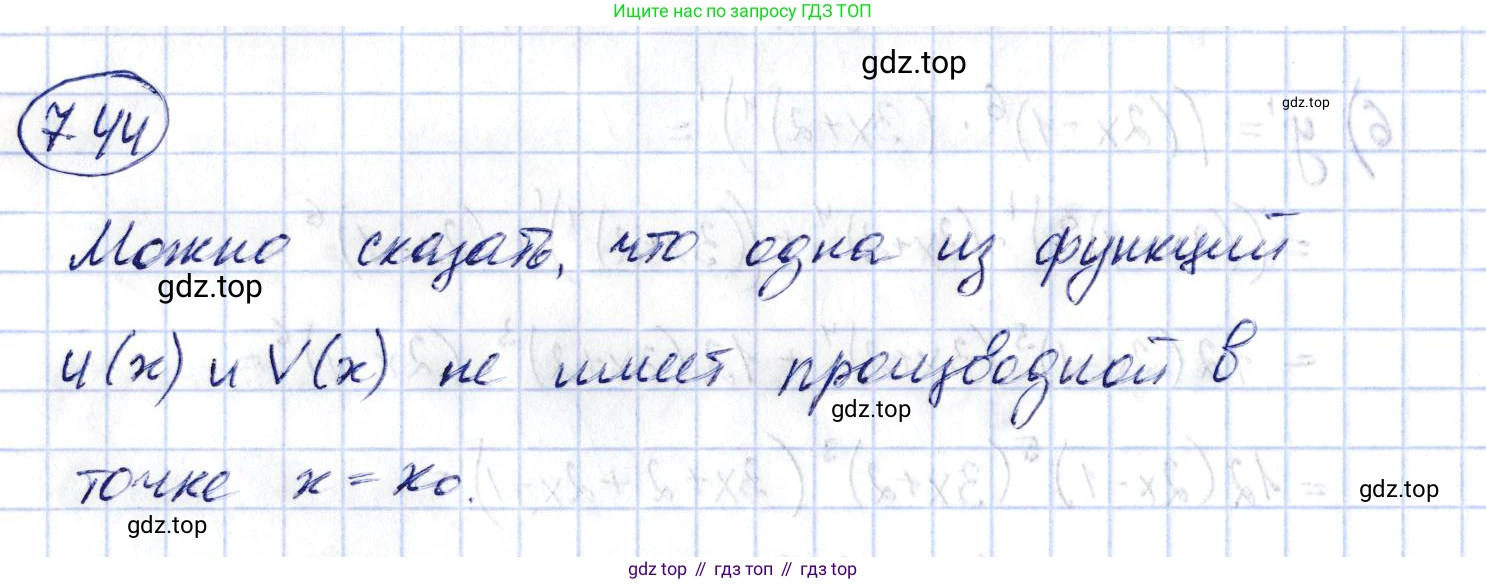 Ищите нас по запросу ГДЗ ТОП
gdz.top
7.44
gdz.top
Можно сказать, что одна из функций
gdz.top
u(x) и V(x) не имеет производной в
gdz.top
точке x = x₀.
gdz.top
gdz.top
gdz top // гдз топ // гдз top